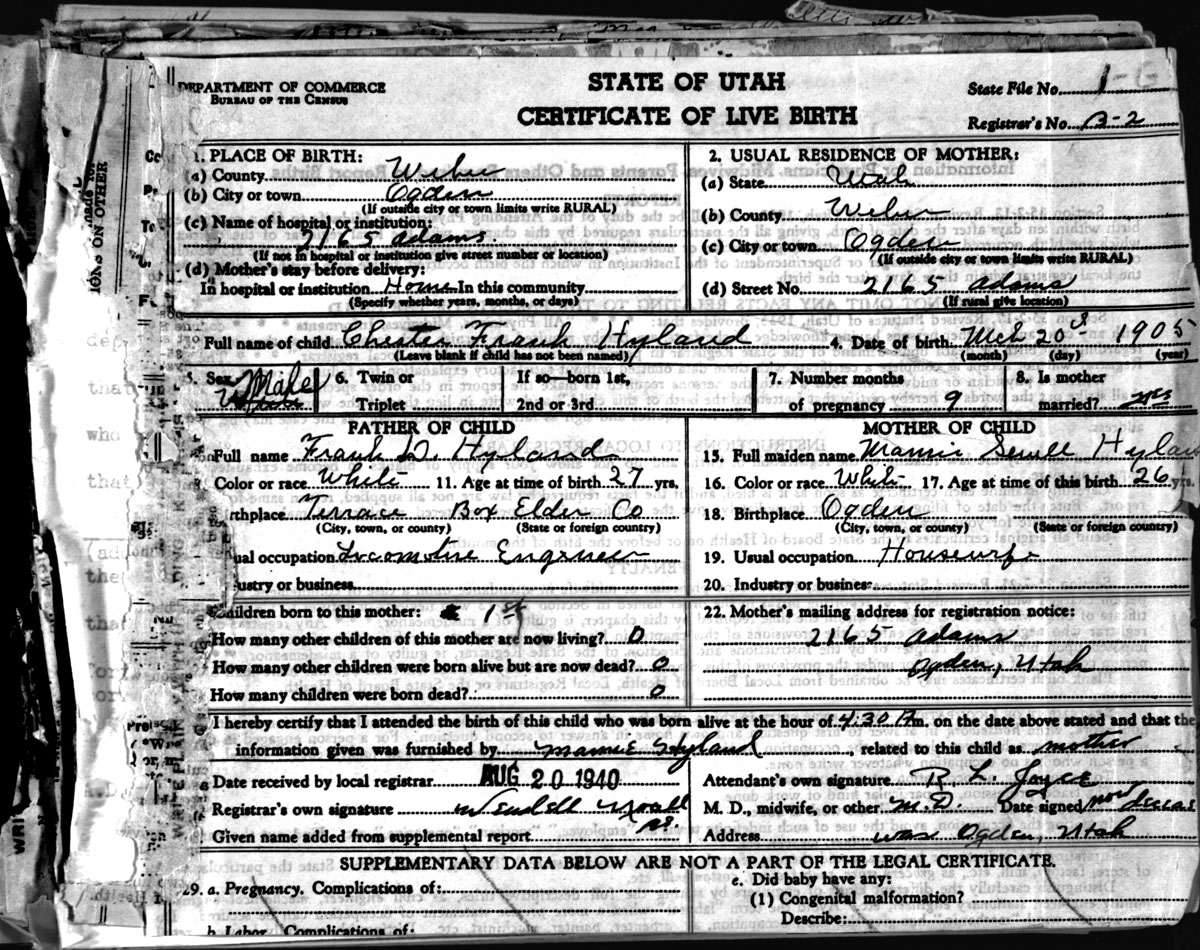 DEPARTMENT OF COMMERCE
BUREAU OF THE CENSUS
STATE OF UTAH
CERTIFICATE OF LIVE BIRTH
State File No. 1-
Registrar's No. B-2
1. PLACE OF BIRTH:
(a) County Weber
(b) City or town Ogden
(If outside city or town limits write RURAL)
(c) Name of hospital or institution:
2165 Adams.
(If not in hospital or institution give street number or location)
(d) Mother's stay before delivery:
In hospital or institution Home In this community
(Specify whether years, months, or days)
2. USUAL RESIDENCE OF MOTHER:
(a) State Utah
(b) County Weber
(c) City or town Ogden
(If outside city or town limits write RURAL)
(d) Street No. 2165 Adams
(If rural give location)
Full name of child Chester Frank Hyland 4. Date of birth Mch 20 1905
(Leave blank if child has not been named) (month) (day) (year)
5. Sex Male 6. Twin or Triplet If so—born 1st, 2nd or 3rd 7. Number months of pregnancy 9 8. Is mother married? yes
FATHER OF CHILD
Full name Frank W. Hyland
Color or race White 11. Age at time of birth 27 yrs.
Birthplace Terrace Box Elder Co
(City, town, or county) (State or foreign country)
ual occupation Locomotive Engineer
ustry or business
MOTHER OF CHILD
15. Full maiden name Mamie Sewell Hylan
16. Color or race White 17. Age at time of this birth 26 yrs.
18. Birthplace Ogden
(City, town, or county) (State or foreign country)
19. Usual occupation Housewife
20. Industry or busines
Children born to this mother: 1st
How many other children of this mother are now living? 0
How many other children were born alive but are now dead? 0
How many children were born dead? 0
22. Mother's mailing address for registration notice:
2165 Adams
Ogden, Utah
I hereby certify that I attended the birth of this child who was born alive at the hour of 4:30 A m. on the date above stated and that the
information given was furnished by Mamie Hyland, related to this child as mother
Date received by local registrar AUG 20 1940
Registrar's own signature Wendell
Given name added from supplemental report
Attendant's own signature R. L. Joyce
M. D., midwife, or other M.D. Date signed now deceas
Address was Ogden, Utah
SUPPLEMENTARY DATA BELOW ARE NOT A PART OF THE LEGAL CERTIFICATE.
29. a. Pregnancy. Complications of:
b. Labor. Complications of:
e. Did baby have any:
(1) Congenital malformation?
Describe: